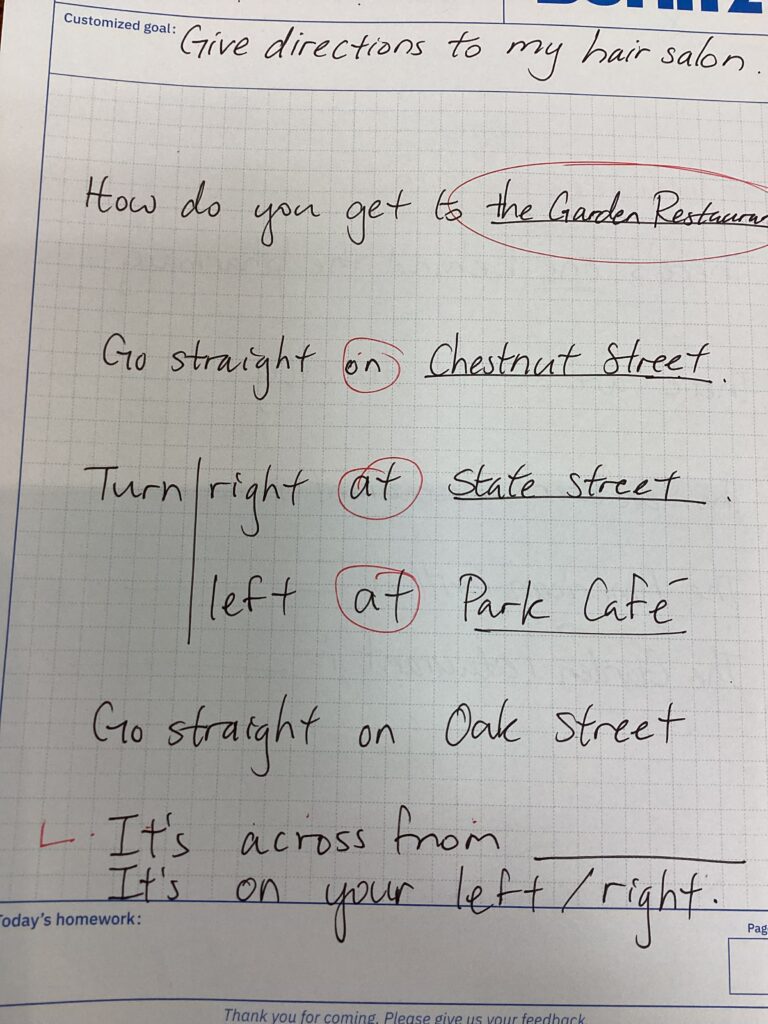 Customized goal: Give directions to my hair salon.
How do you get to the Garden
Go straight on Chestnut Street.
Turn right at State Street.
left at Park Café
Go straight on Oak Street
It's across from
It's on your left / right.
Today's homework:
Thank you for coming. Please give us your feedback